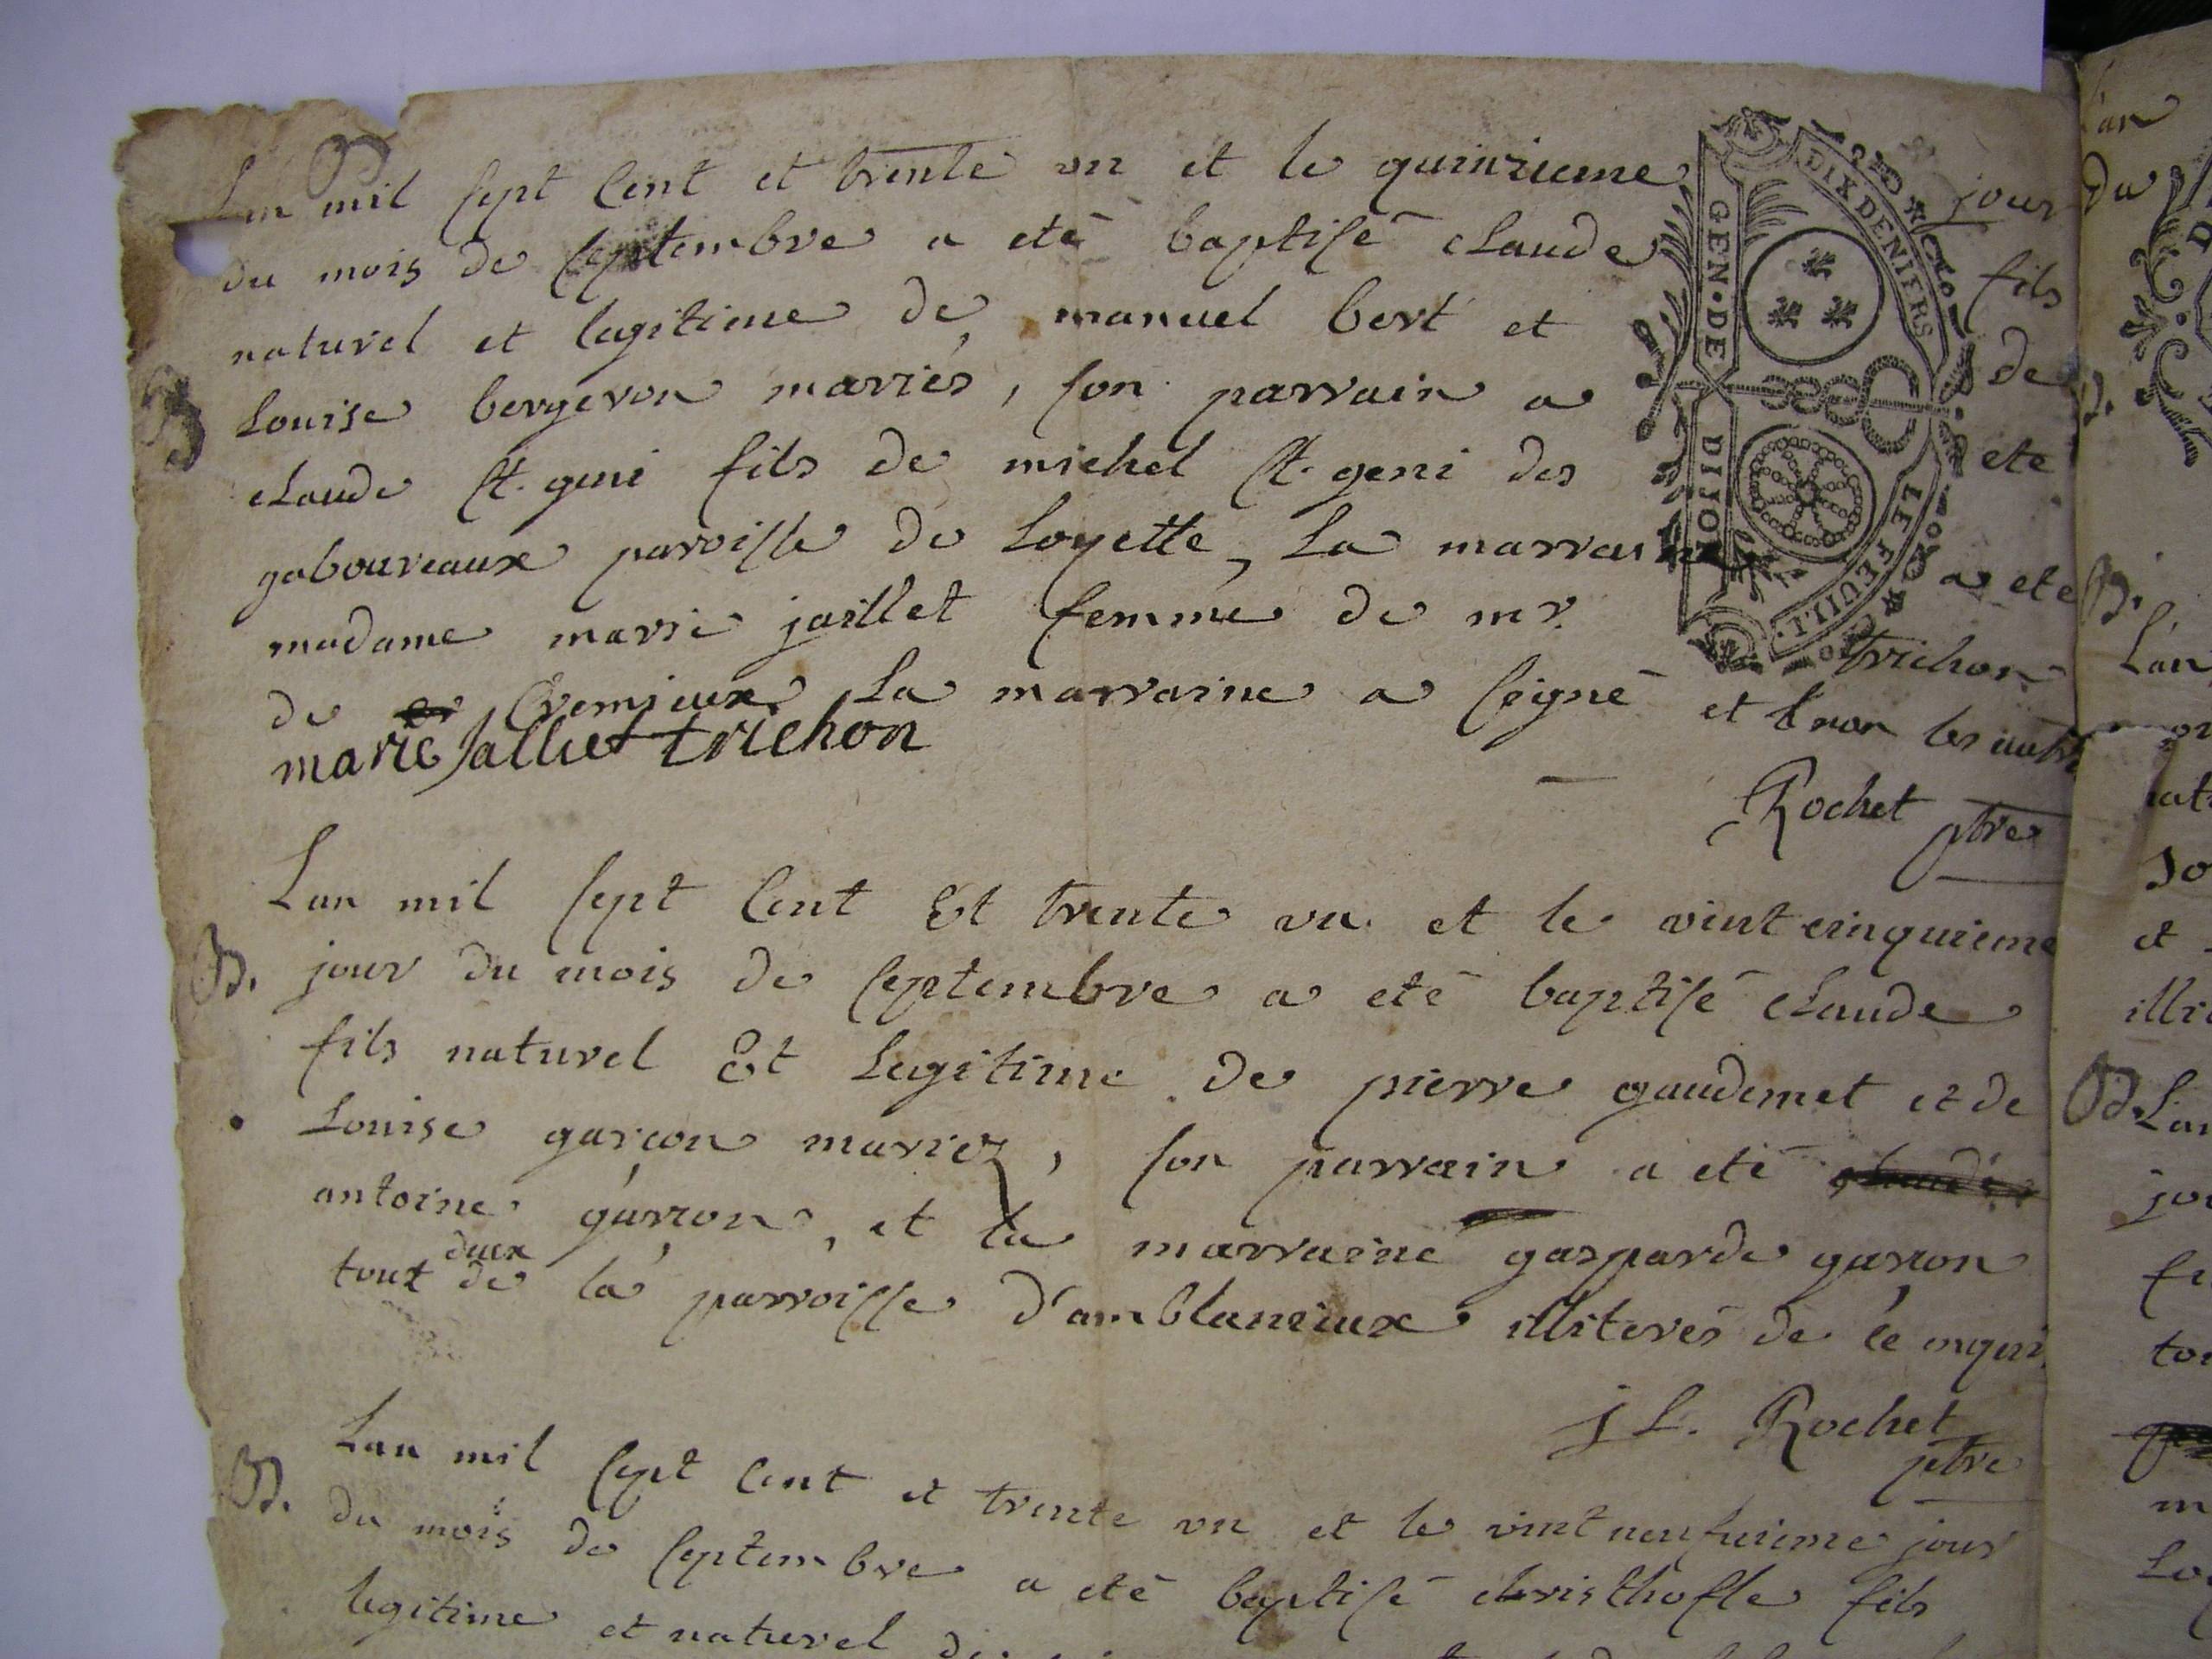 B
Lan mil sept cent et trente un et le quinzieme jour
du mois de septembre a eté baptisé claude fils
naturel et legitime de manuel bert et de
B Louise bergeron mariés, son parrain a eté
claude st. geni fils de michel st. geni des
gaboureaux paroisse de Loyette, La marraine a eté
madame marie jaillet femme de mr. trichon
de Cremieux La marraine a signé et non les autre
marie Jalliet trichon
Rochet ptre
GEN·DE DIJON
DIX DENIERS LE FEUIL.
Lan mil sept cent Et trente un et le vint cinquieme
B. jour du mois de septembre a eté baptisé claude
fils naturel Et Legitime de pierre gaudemet et de
Louise garçon mariez, son parrain a eté
antoine garçon, et la marraine gasparde garçon
tout deux de la parroisse d'amblanieux illiterés de ce enquis
j L. Rochet
ptre
Lan mil sept cent et trente un et le vint neufuieme jour
B. du mois de septembre a eté baptisé christhofle fils
legitime et naturel de